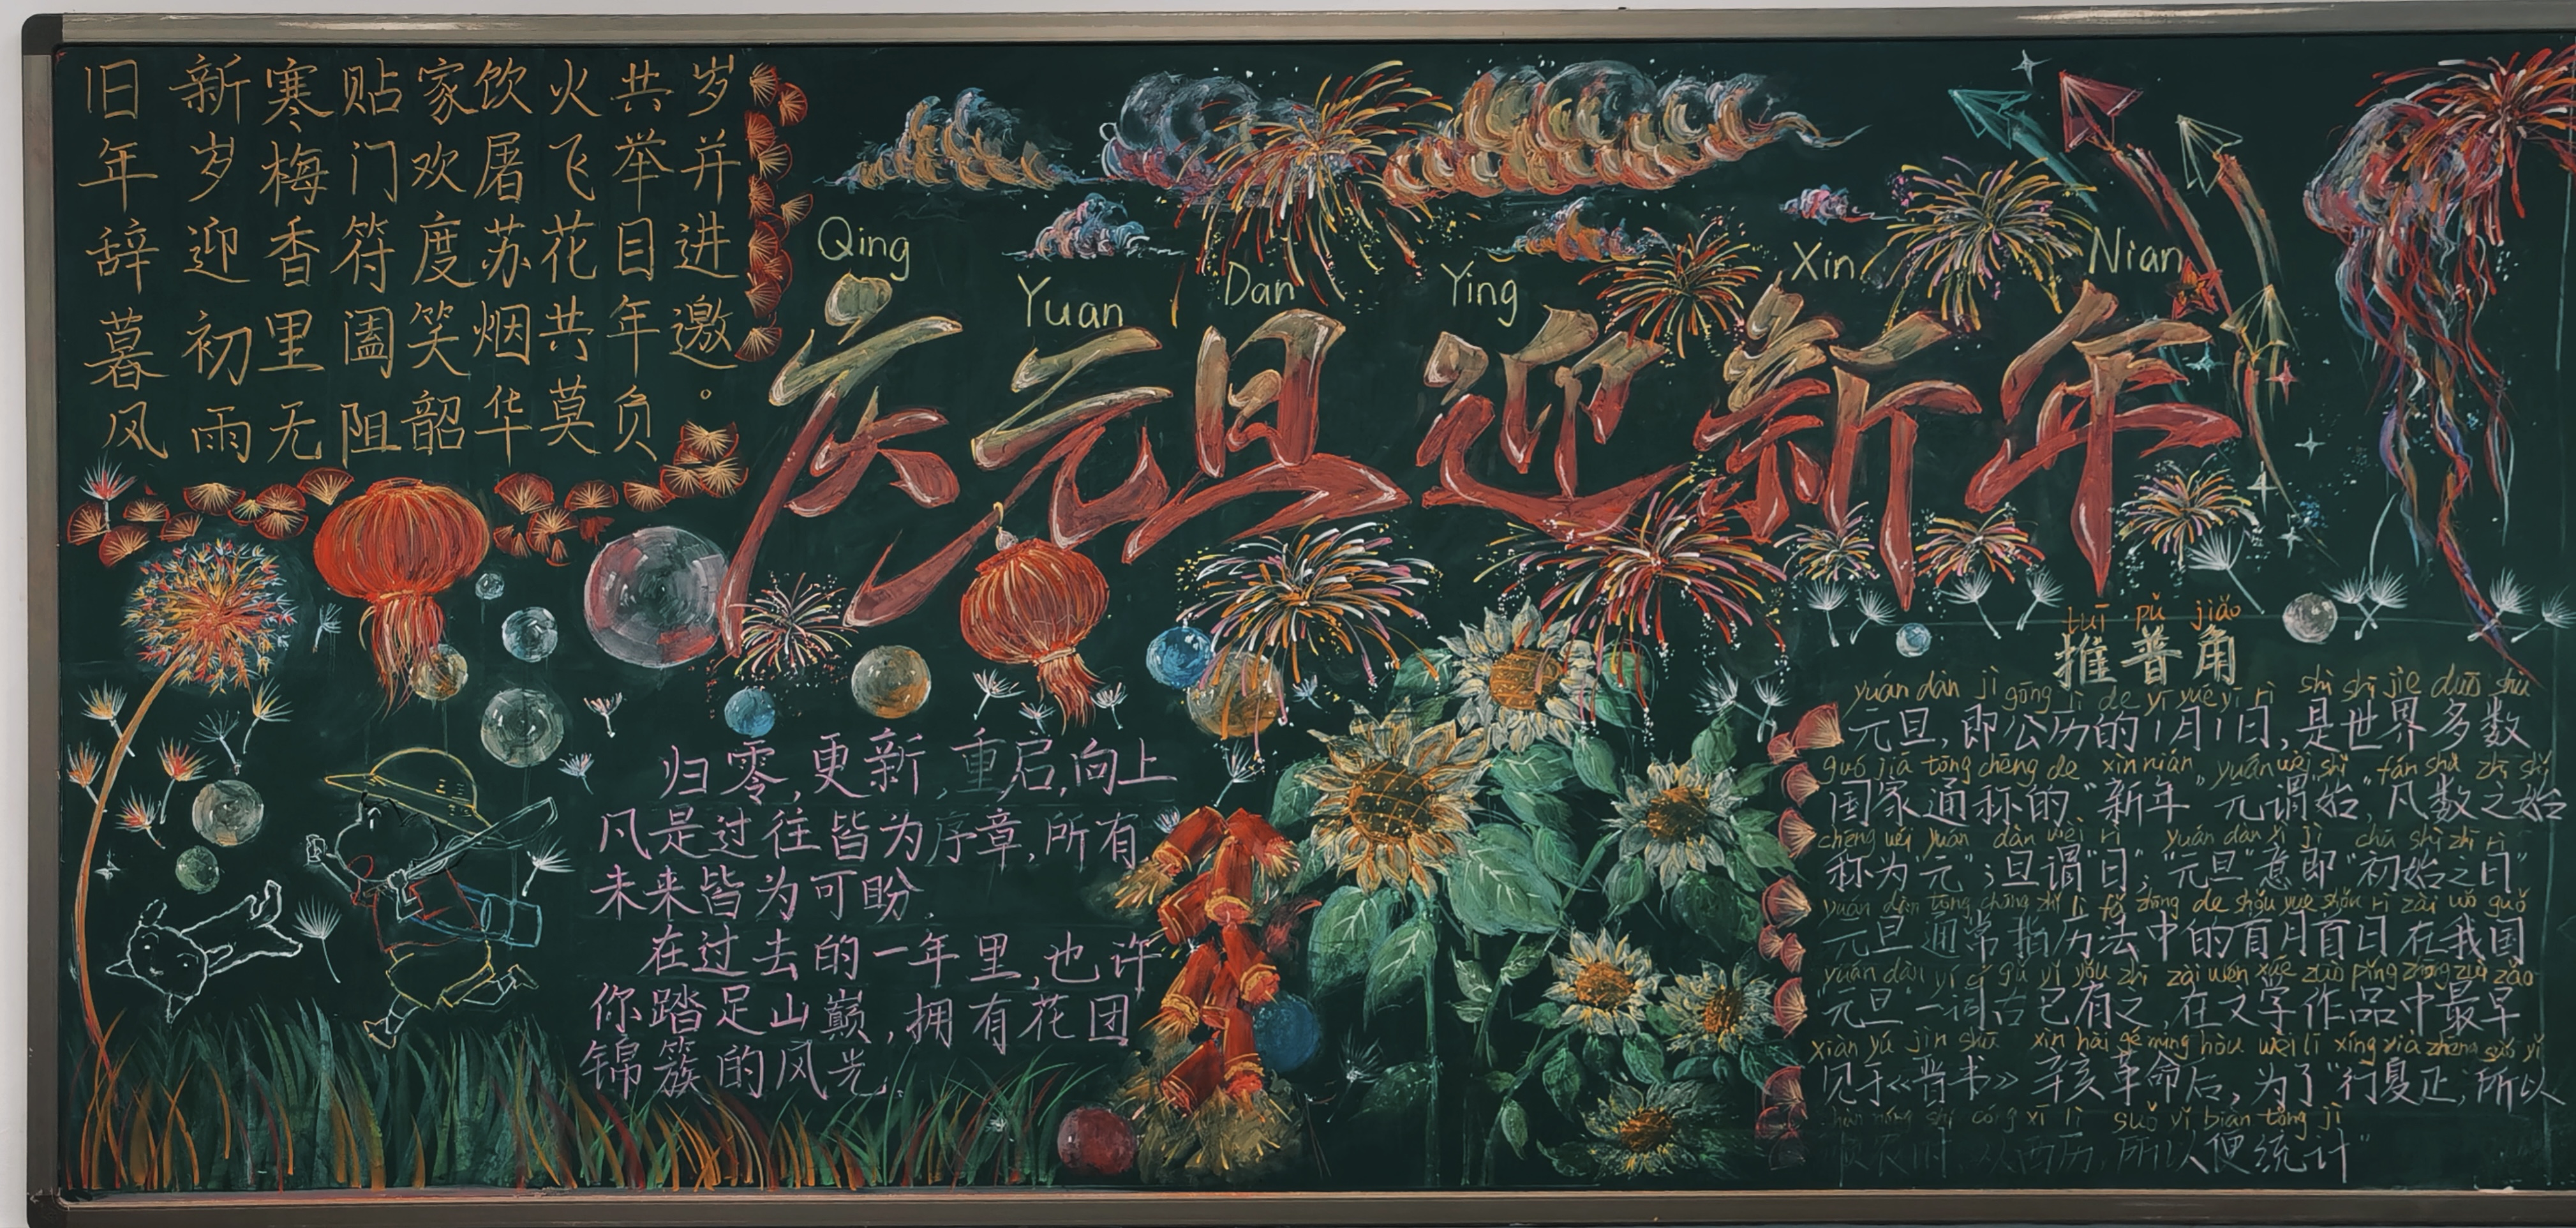 旧年辞暮风
新岁迎初雨
寒梅香里无
贴门符阖阻
家欢度笑韶
饮屠苏烟华
火飞花共莫
共举目年负
岁并进邀。
Qing Yuan Dan Ying Xin Nian
庆元旦迎新年
归零,更新,重启,向上
凡是过往皆为序章,所有
未来皆为可盼.
在过去的一年里,也许
你踏足山巅,拥有花团
锦簇的风光.
tuī pǔ jiǎo
推普角
yuán dàn jì gōng lì de yī yuè yī rì shì shì jiè duō shù
元旦,即公历的1月1日,是世界多数
guó jiā tōng chēng de xīn nián yuán wèi shǐ fán shù zhī shǐ
国家通称的“新年”元谓“始”,凡数之始
chēng wéi yuán dàn wèi rì yuán dàn yì jí chū shǐ zhī rì
称为“元”;旦谓“日”;“元旦”意即“初始之日”
yuán dàn tōng cháng zhǐ lì fǎ zhōng de shǒu yuè shǒu rì zài wǒ guó
元旦通常指历法中的首月首日在我国
yuán dàn yī cí gǔ yǐ yǒu zhī zài wén xué zuò pǐn zhōng zuì zǎo
元旦一词古已有之,在文学作品中最早
xiàn yú jìn shū xīn hài gé mìng hòu wèi lì xíng xià zhèng suǒ yǐ
见于《晋书》 辛亥革命后,为了“行夏正,所以
shùn nóng shí cóng xī lì suǒ yǐ biàn tǒng jì
顺农时,从西历,所以便统计”